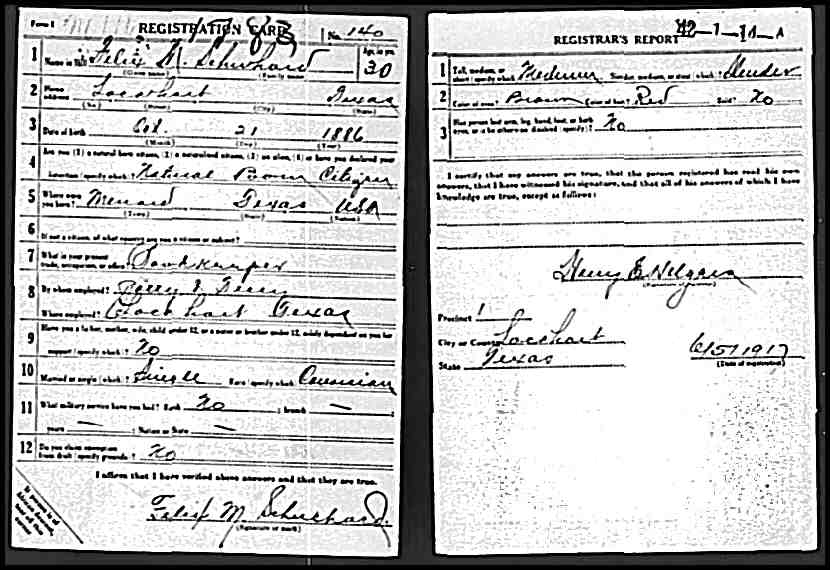 Form 1 REGISTRATION CARD No. 140
1 Name in full Felix M. Schuchard Age, in yrs. 30
(Given name) (Family name)
2 Home address Lockhart Texas
(No.) (Street) (City) (State)
3 Date of birth Oct. 21 1886
(Month) (Day) (Year)
4 Are you (1) a natural born citizen, (2) a naturalized citizen, (3) an alien, (4) or have you declared your
intention (specify which)? Natural Born Citizen
5 Where were you born? Menard Texas USA
(Town) (State) (Nation)
6 If not a citizen, of what country are you a citizen or subject?
7 What is your present trade, occupation, or office? Bookkeeper
8 By whom employed?
Where employed? Lockhart Texas
9 Have you a father, mother, wife, child under 12, or a sister or brother under 12, solely dependent on you for
support (specify which)? No
10 Married or single (which)? Single Race (specify which)? Caucasian
11 What military service have you had? Rank No ; branch — ;
years — ; Nation or State —
12 Do you claim exemption from draft (specify grounds)? No
I affirm that I have verified above answers and that they are true.
Felix M Schuchard.
(Signature or mark)
42-1-11-A
REGISTRAR'S REPORT
1 Tall, medium, or short (specify which)? Medium Slender, medium, or stout (which)? Slender
2 Color of eyes? Brown Color of hair? Red Bald? No
3 Has person lost arm, leg, hand, foot, or both eyes, or is he otherwise disabled (specify)? No
I certify that my answers are true, that the person registered has read his own
answers, that I have witnessed his signature, and that all of his answers of which I have
knowledge are true, except as follows:
Precinct 1
City or County Lockhart
State Texas 6/5/1917
(Date of registration)